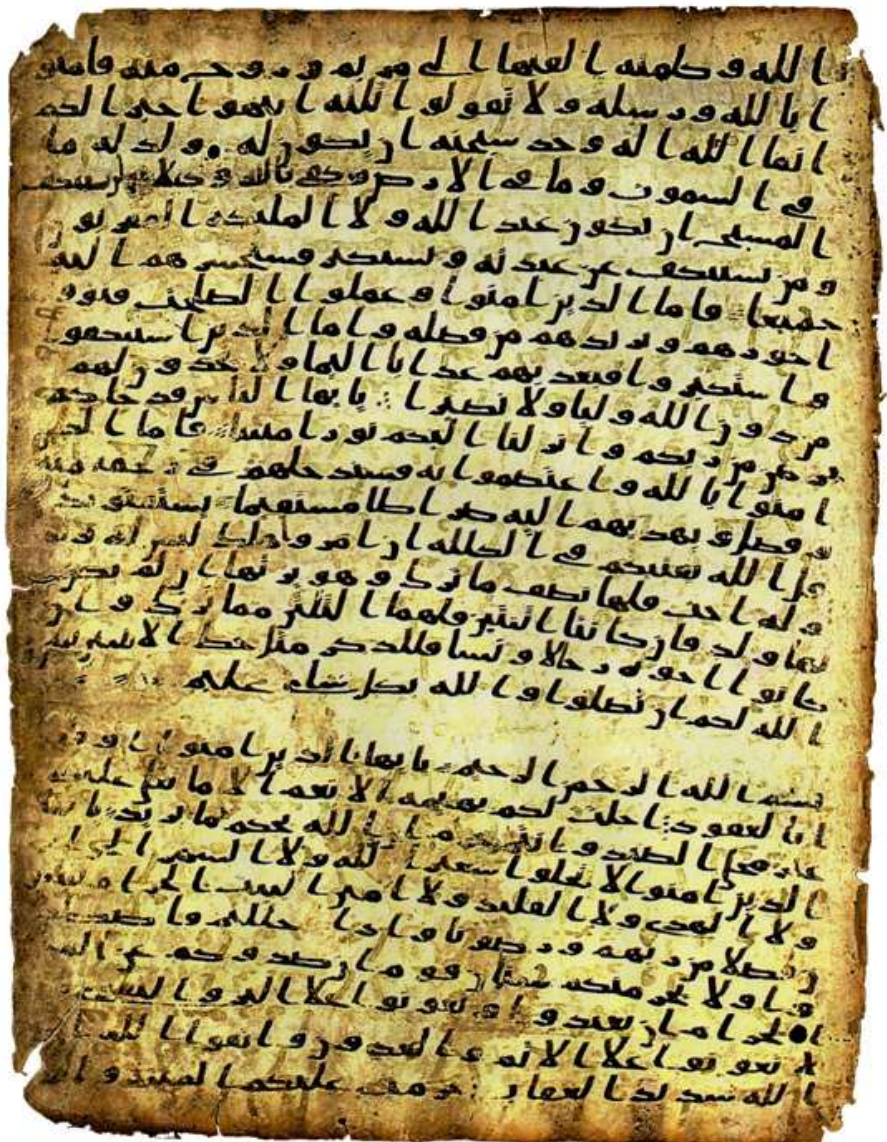 الله وكلمته القيها الى مريم وروح منه فامنو
ا بالله ورسله ولا تقولوا ثلثه انتهوا خيرا لكم
انما الله اله وحد سبحنه ان يكون له ولد له ما
في السموت وما في الارض وكفى بالله وكيلا لن يستنكف
المسيح ان يكون عبدا لله ولا الملئكه المقربون
ومن يستنكف عن عبدته ويستكبر فسيحشرهم اليه
جميعا فاما الذين امنوا وعملوا الصلحت فيوفيهم
اجورهم ويزيدهم من فضله واما الذين استنكفو
ا واستكبروا فيعذبهم عذابا اليما ولا يجدون لهم
من دون الله وليا ولا نصيرا يايها الناس قد جاكم
برهن من ربكم وانزلنا اليكم نورا مبينا فاما الذين
امنوا بالله واعتصموا به فسيدخلهم في رحمه منه
وفضل ويهديهم اليه صراطا مستقيما يستفتونك
قل الله يفتيكم في الكلله ان امروا هلك ليس له ولد
وله اخت فلها نصف ما ترك وهو يرثها ان لم يكن
لها ولد فان كانتا اثنتين فلهما الثلثن مما ترك وان
كانوا اخوه رجالا ونسا فللذكر مثل حظ الانثيين يبين
الله لكم ان تضلوا والله بكل شاي عليم
بسم الله الرحمن الرحيم يايها الذين امنوا اوفو
ا بالعقود احلت لكم بهيمه الانعم الا ما يتلى عليكم
غير محلي الصيد وانتم حرم ان الله يحكم ما يريد يايها
الذين امنوا لا تحلوا شعير الله ولا الشهر الحرام
ولا الهدي ولا القليد ولا امين البيت الحرام يبتغون
فضلا من ربهم ورضونا واذا حللتم فاصطدو
ا ولا يجرمنكم شنان قوم ان صدوكم عن المسجد
الحرام ان تعتدوا وتعونوا على البر والتقوى و
لا تعونوا على الاثم والعدون واتقوا الله ان
الله شديد العقاب حرمت عليكم الميته والدم